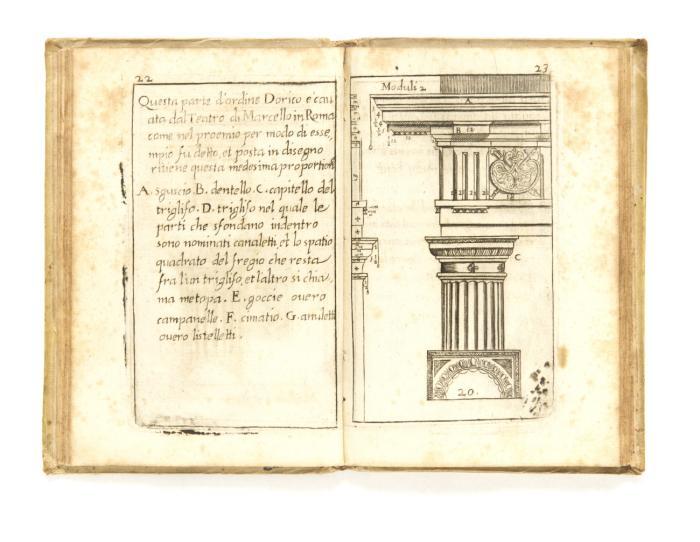 22
Questa parte d'ordine Dorico e' cau
ata dal Teatro di Marcello in Roma
come nel proemio per modo di esse,
mpio fu detto, et posta in disegno
ritiene questa medesima proportione
A. sguscio. B. dentello. C. capitello del
triglifo. D. triglifo nel quale le
parti che sfondano indentro
sono nominati canaletti, et lo spatio
quadrato del fregio che resta
fra l'un triglifo, et l'altro si chia,
ma metopa. E. goccie ouero
campanelle. F. cimatio. G. anuletti
ouero listelletti.
23
Moduli 2
A
B 12
C
20.